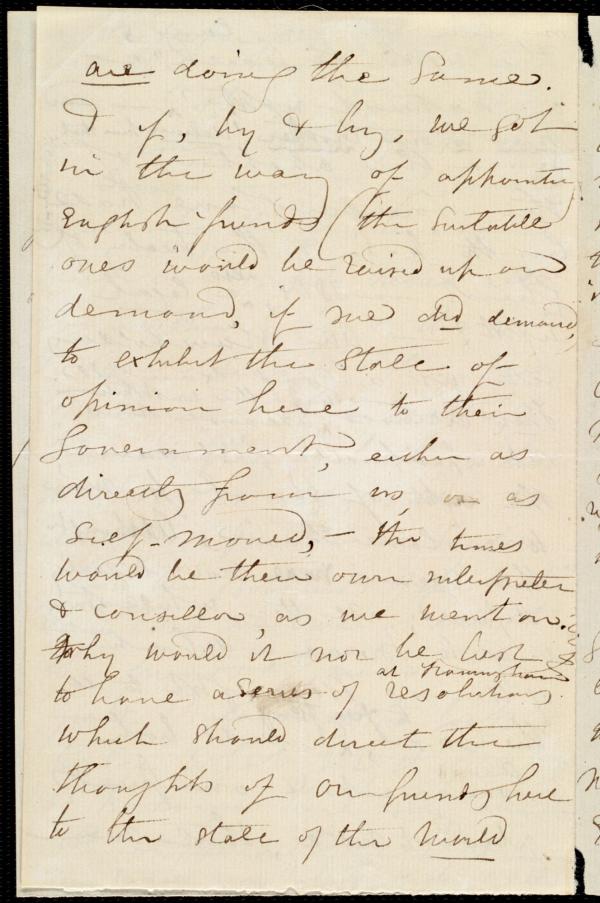 are doing the same.
& if, by & by, we got
in the way of appointing
English friends (the suitable
ones would be raised up on
demand, if we did demand,)
to exhibit the state of
opinion here to their
Government, either as
directly from us, or as
self-moved, - the times
would be their own interpreter
& consellor, as we went on.
Why would it not be best
at Framingham
to have a series of resolutions
which should direct the
thoughts of our friends here
to the state of the world